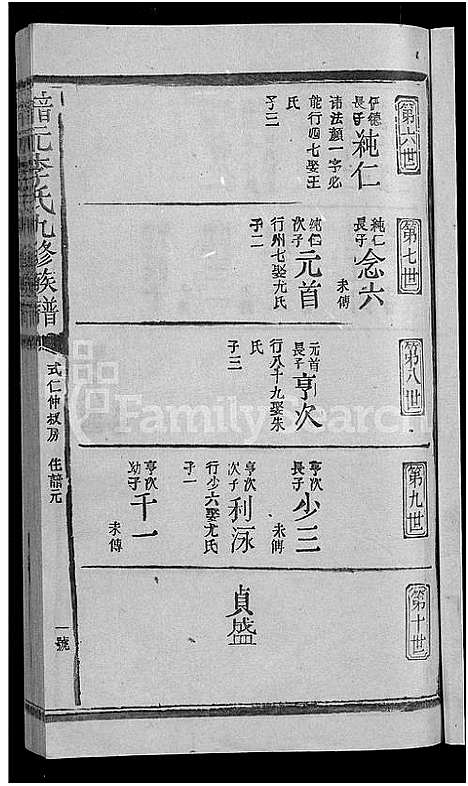 第六世
伊德長子
純仁
諱法顏一字必
能行四七娶王
氏
子二
第七世
純仁長子
念六
未傳
純仁次子
元首
行州七娶尤氏
子二
第八世
元首長子
亨次
行八千九娶朱
氏
子三
第九世
亨次長子
少三
未傳
亨次次子
利泳
行少六娶尤氏
子一
亨次幼子
千一
未傳
第十世
貞盛
元李氏九修族譜
式仁仲叔房
住譜元
一號
FamilySearch